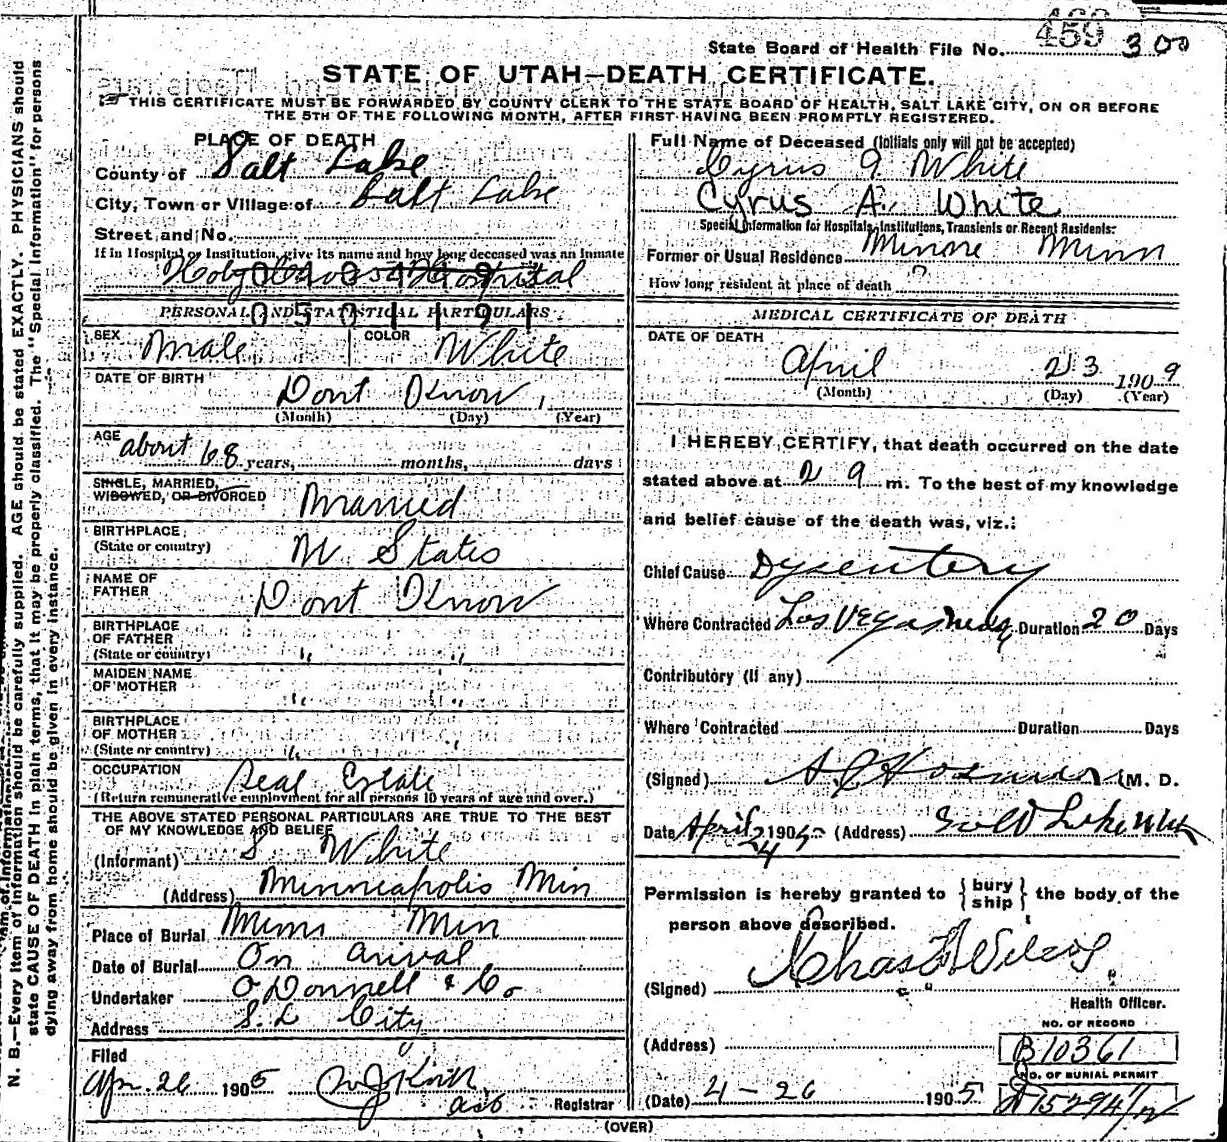 459 300
State Board of Health File No.
STATE OF UTAH—DEATH CERTIFICATE.
THIS CERTIFICATE MUST BE FORWARDED BY COUNTY CLERK TO THE STATE BOARD OF HEALTH, SALT LAKE CITY, ON OR BEFORE
THE 5TH OF THE FOLLOWING MONTH, AFTER FIRST HAVING BEEN PROMPTLY REGISTERED.
PLACE OF DEATH
County of Salt Lake
City, Town or Village of Salt Lake
Street and No.
If in Hospital or Institution, give its name and how long deceased was an Inmate
Holy Cross Hospital
PERSONAL AND STATISTICAL PARTICULARS
SEX Male COLOR White
DATE OF BIRTH Dont Know
(Month) (Day) (Year)
AGE about 68 years, months, days
SINGLE, MARRIED,
WIDOWED, OR DIVORCED Married
BIRTHPLACE
(State or country) U States
NAME OF
FATHER Dont Know
BIRTHPLACE
OF FATHER
(State or country) " "
MAIDEN NAME
OF MOTHER " "
BIRTHPLACE
OF MOTHER
(State or country) " "
OCCUPATION Real Estate
(Return remunerative employment for all persons 10 years of age and over.)
THE ABOVE STATED PERSONAL PARTICULARS ARE TRUE TO THE BEST
OF MY KNOWLEDGE AND BELIEF
(Informant) S White
(Address) Minneapolis Min
Place of Burial Minns Min
Date of Burial On arival
Undertaker O Donnell & Co
Address S. L City
Filed
Apr. 26 1905
Registrar
Full Name of Deceased (Initials only will not be accepted)
Cyrus A White
Cyrus A. White
Special Information for Hospitals, Institutions, Transients or Recent Residents:
Former or Usual Residence Minn
How long resident at place of death ?
MEDICAL CERTIFICATE OF DEATH
DATE OF DEATH
April 23 1909
(Month) (Day) (Year)
I HEREBY CERTIFY, that death occurred on the date
stated above at 2 9 m. To the best of my knowledge
and belief cause of the death was, viz.:
Chief Cause Dysentery
Where Contracted Los Vegas Duration 20 Days
Contributory (If any)
Where Contracted Duration Days
(Signed) M. D.
Date April 24 1905 (Address) Salt Lake Utah
Permission is hereby granted to { bury ship } the body of the
person above described.
(Signed) Chas Wilcox
Health Officer.
NO. OF RECORD
(Address) B10361
NO. OF BURIAL PERMIT
(Date) 4-26 1905
(OVER)
N. B.—Every item of information should be carefully supplied. AGE should be stated EXACTLY. PHYSICIANS should
state CAUSE OF DEATH in plain terms, that it may be properly classified. The "Special Information" for persons
dying away from home should be given in every instance.